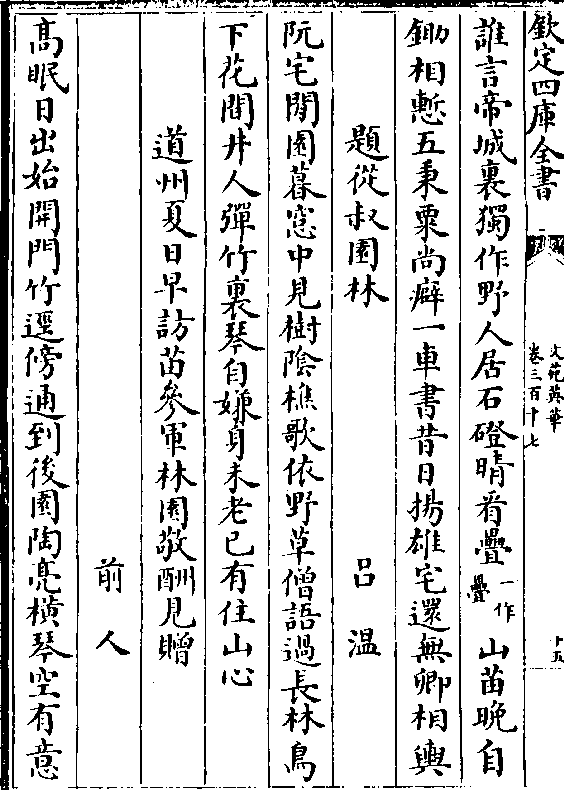 欽定四庫全書
文苑英華
卷三百十七
十五
誰言帝城裏獨作野人居石磴晴看疊一作疊山苗晚自
鋤相慙五秉粟尚癖一車書昔日揚雄宅還無卿相輿
題從叔園林
呂溫
阮宅閒園暮窓中見樹陰樵歌依野草僧語過長林鳥
下花間井人彈竹裏琴自嫌身未老已有住山心
道州夏日早訪苗參軍林園敬酬見贈
前人
髙眠日出始開門竹逕傍通到後園陶亮橫琴空有意